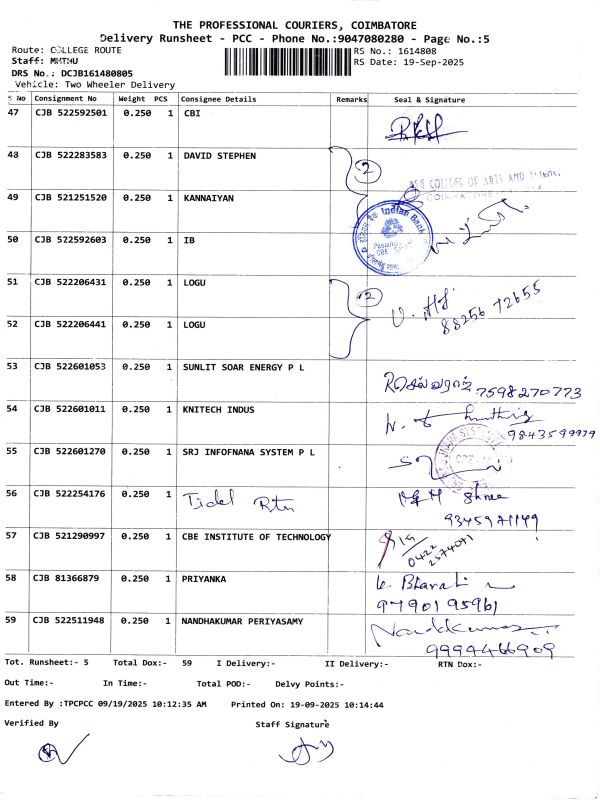 THE PROFESSIONAL COURIERS, COIMBATORE
Delivery Runsheet - PCC - Phone No.:9047080280 - Page No.:5
Route: COLLEGE ROUTE RS No.: 1614808
Staff: RS Date: 19-Sep-2025
DRS No.: DCJB161480805
Vehicle: Two Wheeler Delivery
S No Consignment No Weight PCS Consignee Details Remarks Seal & Signature
47 CJB 522592501 0.250 1 CBI
48 CJB 522283583 0.250 1 DAVID STEPHEN 2
COLLEGE OF ARTS AND
49 CJB 521251520 0.250 1 KANNAIYAN
Indian Bank
50 CJB 522592603 0.250 1 IB
51 CJB 522206431 0.250 1 LOGU 2
88256 72655
52 CJB 522206441 0.250 1 LOGU
53 CJB 522601053 0.250 1 SUNLIT SOAR ENERGY P L
7598270773
54 CJB 522601011 0.250 1 KNITECH INDUS
9843599979
55 CJB 522601270 0.250 1 SRJ INFOFNANA SYSTEM P L
56 CJB 522254176 0.250 1 Tidel Shree
9345971149
57 CJB 521290997 0.250 1 CBE INSTITUTE OF TECHNOLOGY
0422
2574071
58 CJB 81366879 0.250 1 PRIYANKA K. Bharati
9790195961
59 CJB 522511948 0.250 1 NANDHAKUMAR PERIYASAMY Nandakumar
9994466909
Tot. Runsheet:- 5 Total Dox:- 59 I Delivery:- II Delivery:- RTN Dox:-
Out Time:- In Time:- Total POD:- Delvy Points:-
Entered By :TPCPCC 09/19/2025 10:12:35 AM Printed On: 19-09-2025 10:14:44
Verified By Staff Signature